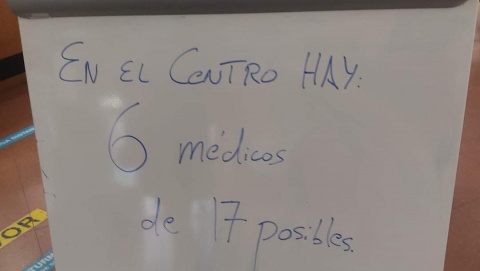 EN EL CENTRO HAY:
6 médicos
de 17 posibles.